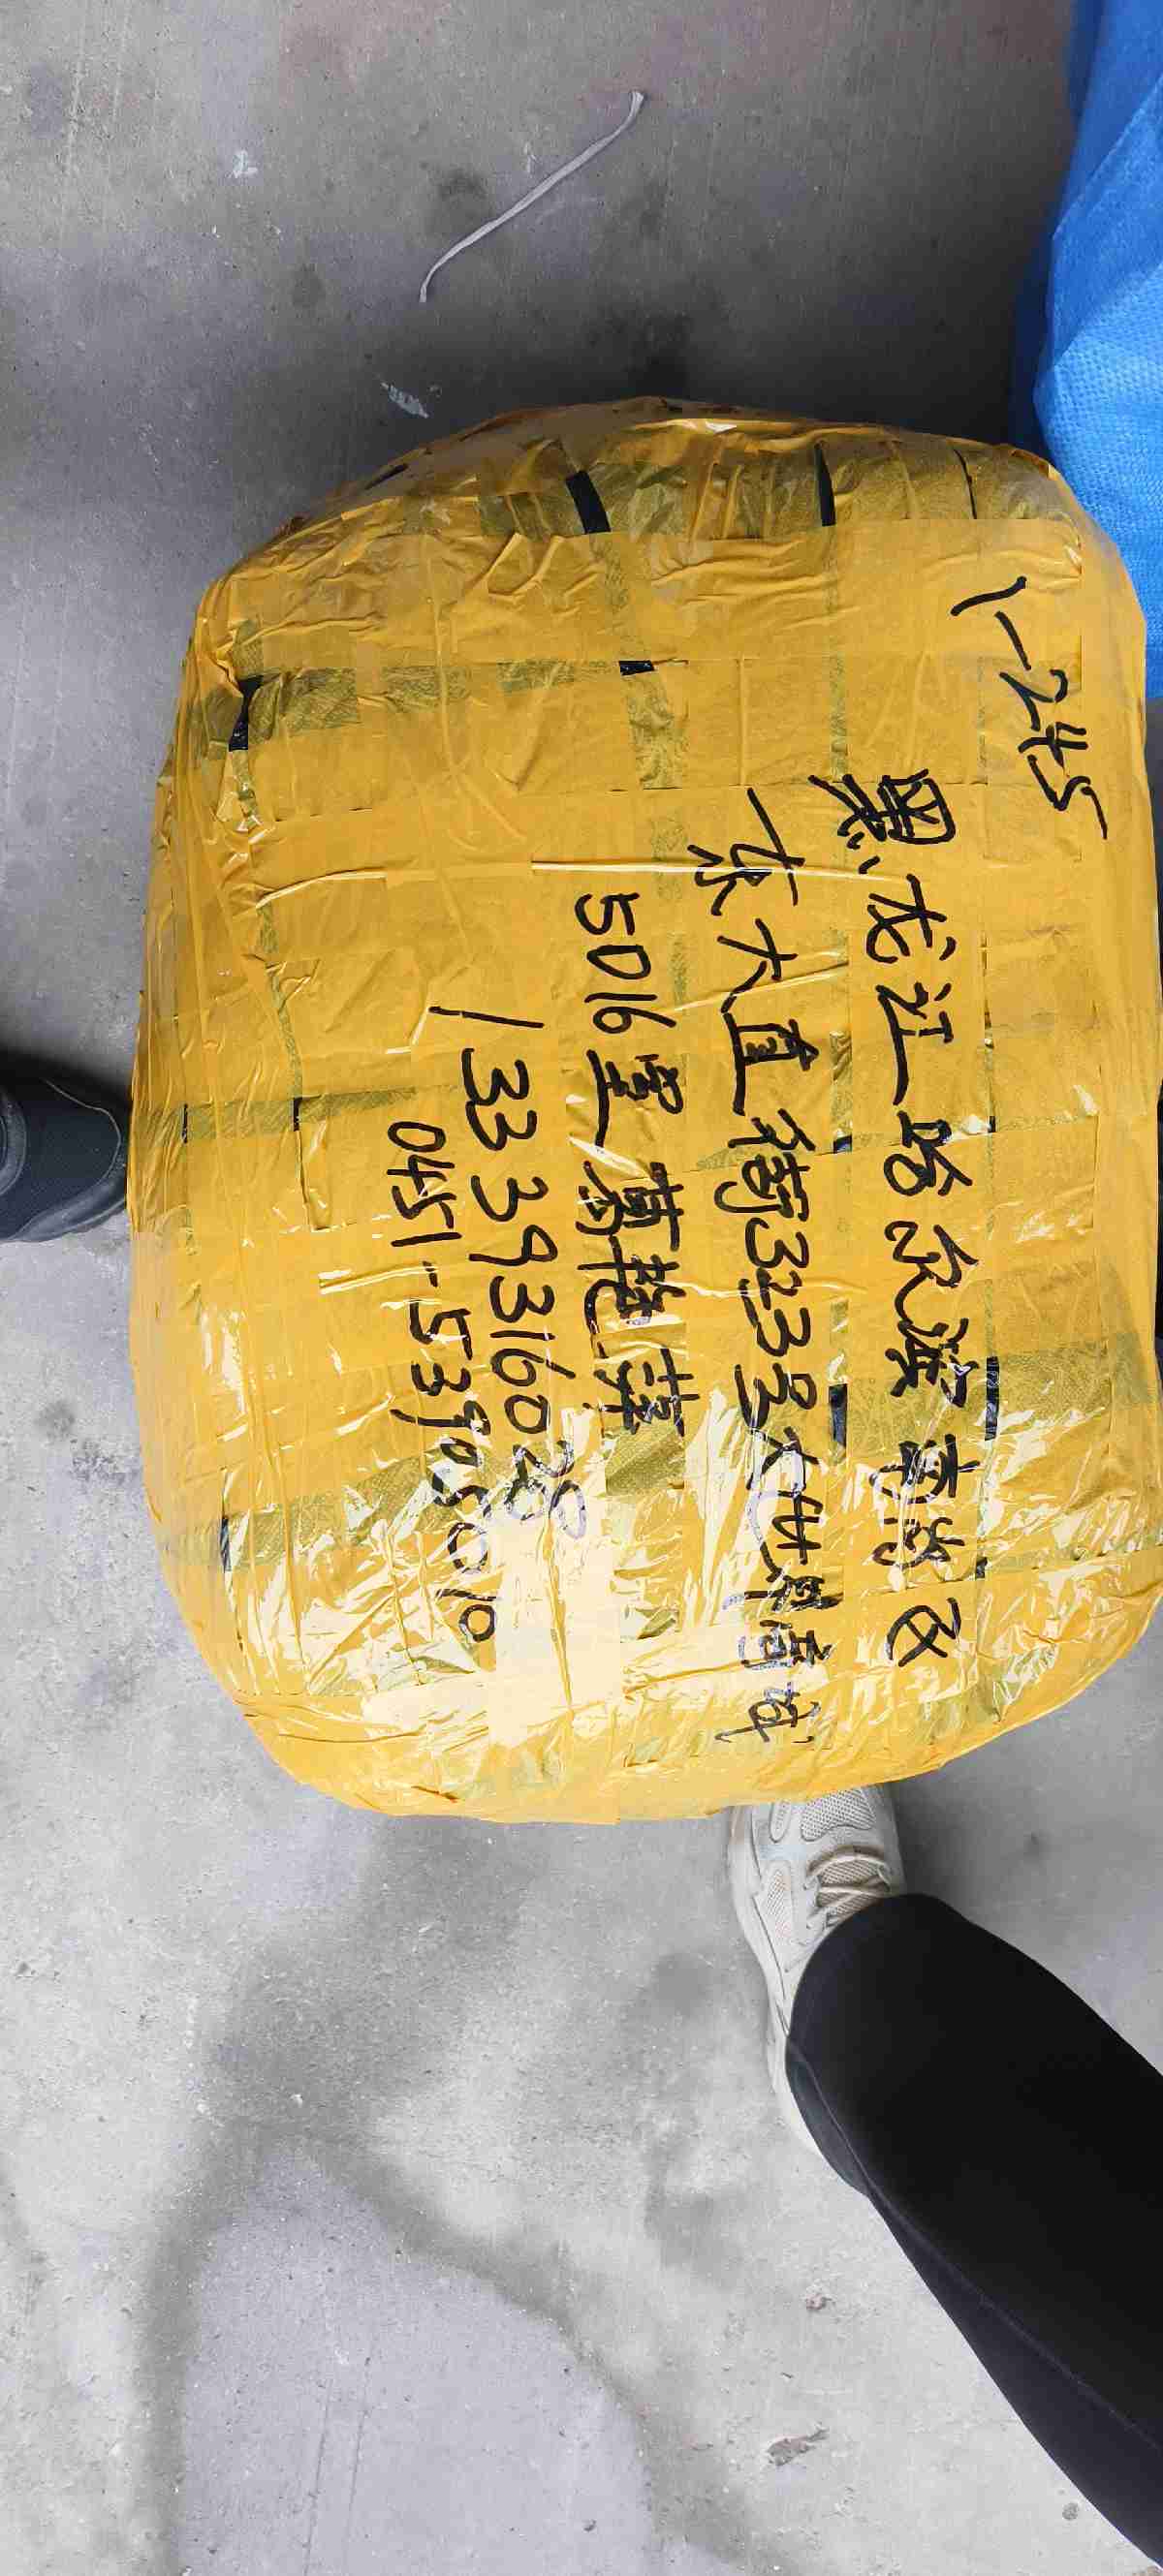 1-245
黑龙江哈尔滨 南岗区
东大直街323号大世界商城
5016室 葡艳萍
13339316028
0451-53905010